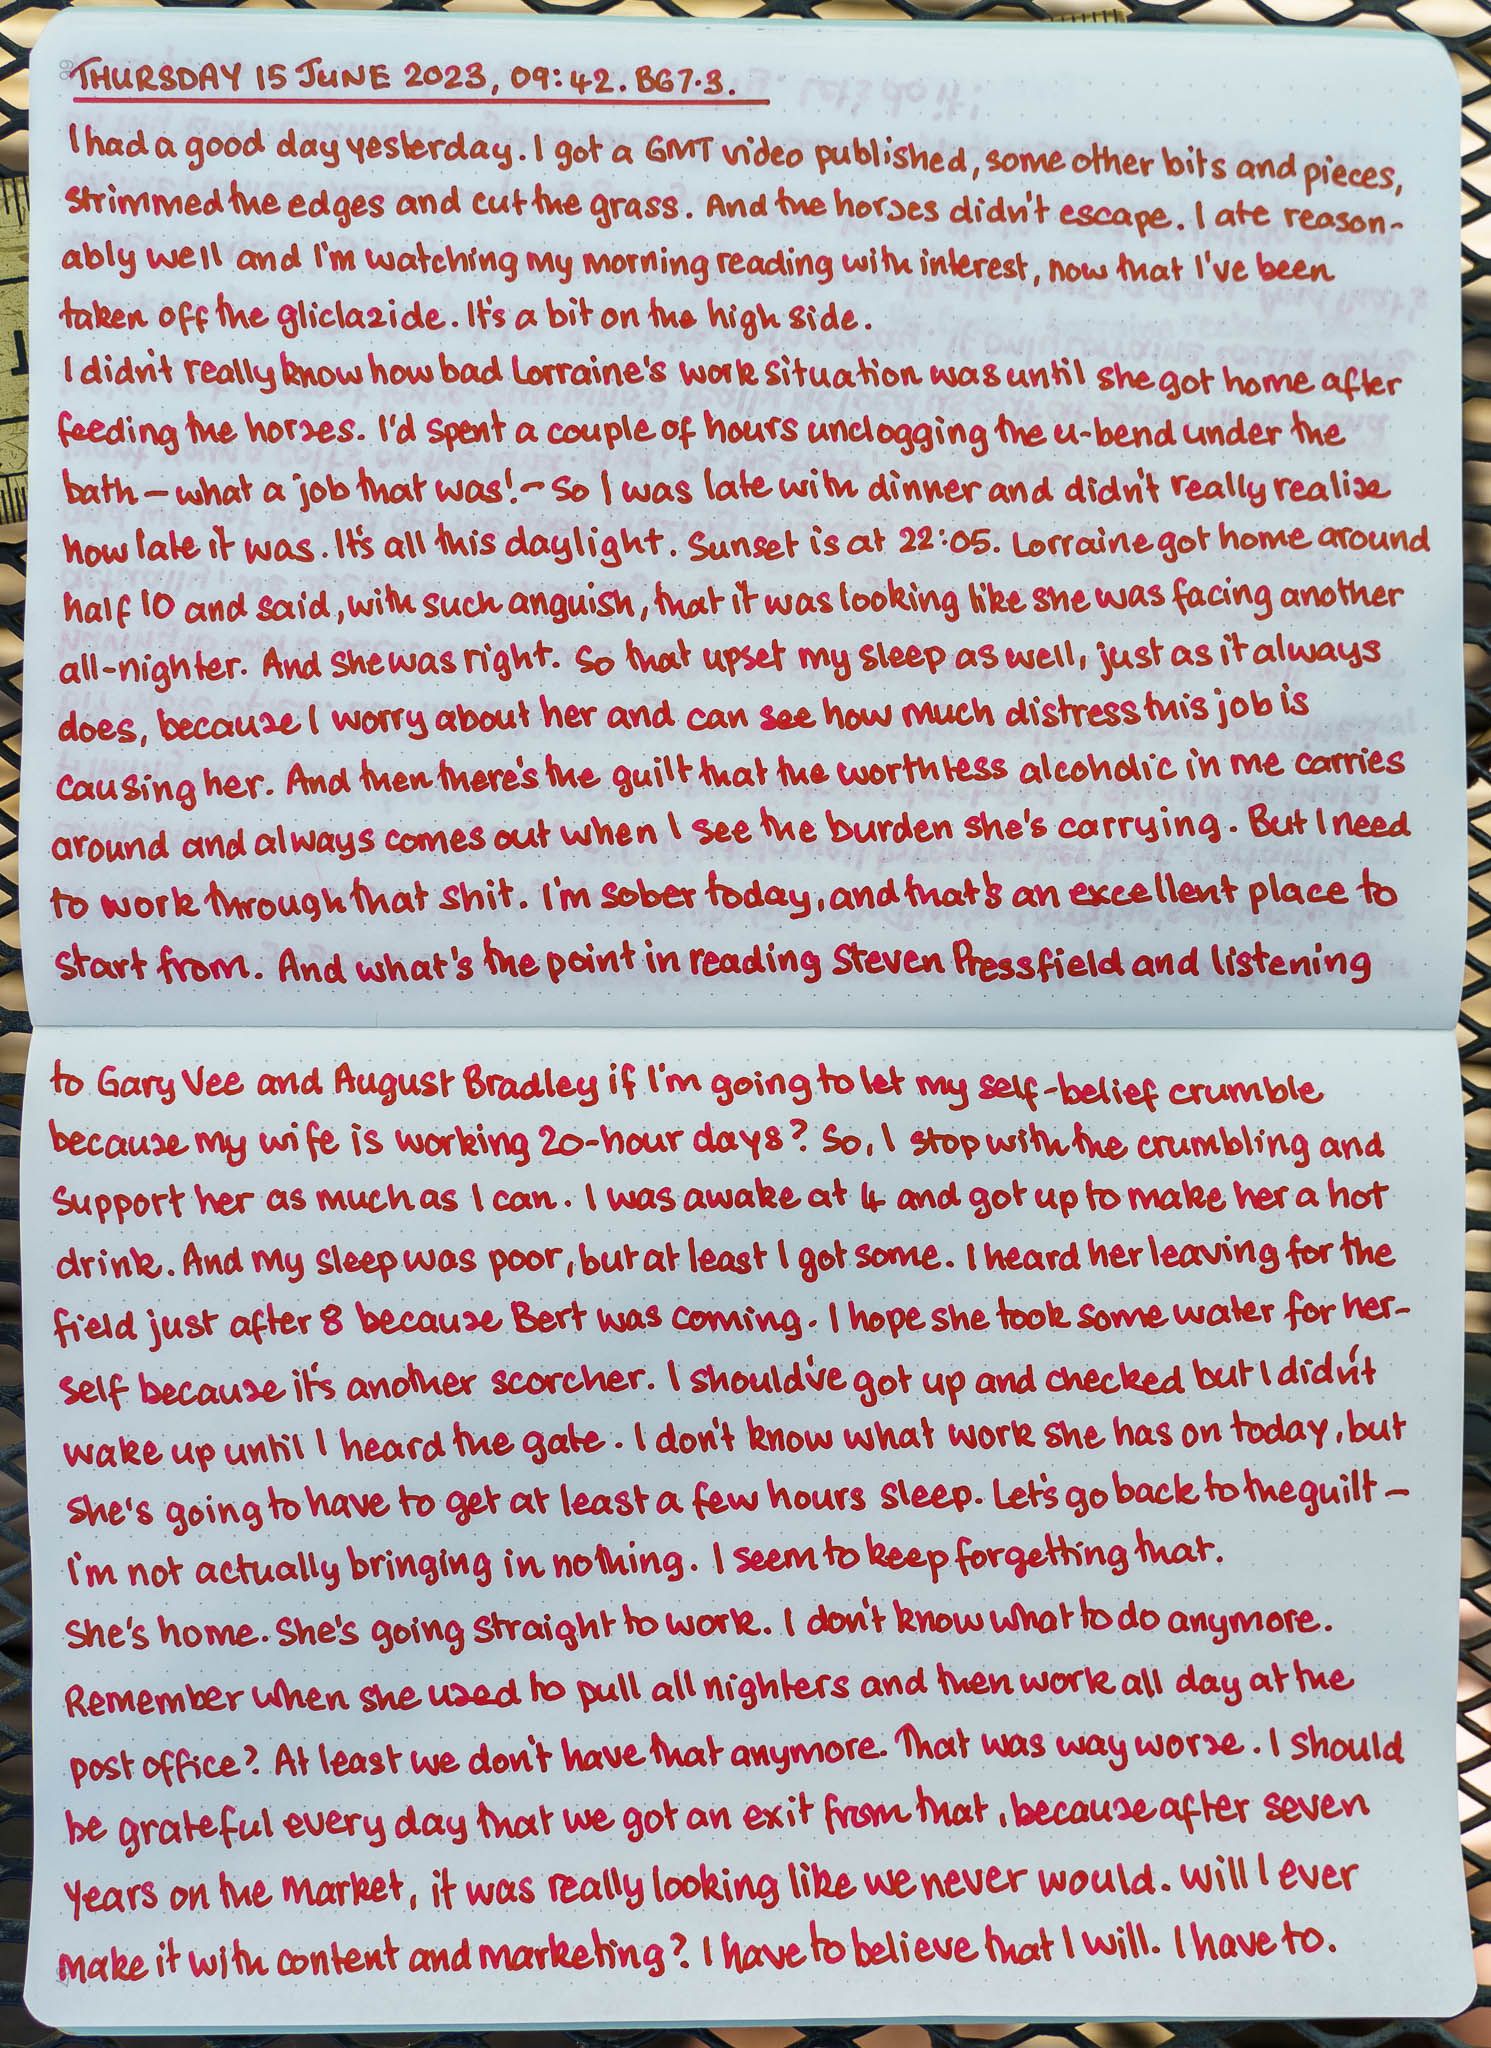 THURSDAY 15 JUNE 2023, 09:42. BG7.3.
I had a good day yesterday. I got a GMT video published, some other bits and pieces,
strimmed the edges and cut the grass. And the horses didn't escape. I ate reason-
ably well and I'm watching my morning reading with interest, now that I've been
taken off the gliclazide. It's a bit on the high side.
I didn't really know how bad Lorraine's work situation was until she got home after
feeding the horses. I'd spent a couple of hours unclogging the u-bend under the
bath – what a job that was! – So I was late with dinner and didn't really realise
how late it was. It's all this daylight. Sunset is at 22:05. Lorraine got home around
half 10 and said, with such anguish, that it was looking like she was facing another
all-nighter. And she was right. So that upset my sleep as well, just as it always
does, because I worry about her and can see how much distress this job is
causing her. And then there's the guilt that the worthless alcoholic in me carries
around and always comes out when I see the burden she's carrying. But I need
to work through that shit. I'm sober today, and that's an excellent place to
start from. And what's the point in reading Steven Pressfield and listening
to Gary Vee and August Bradley if I'm going to let my self-belief crumble
because my wife is working 20-hour days? So, I stop with the crumbling and
support her as much as I can. I was awake at 4 and got up to make her a hot
drink. And my sleep was poor, but at least I got some. I heard her leaving for the
field just after 8 because Bert was coming. I hope she took some water for her-
self because it's another scorcher. I should've got up and checked but I didn't
wake up until I heard the gate. I don't know what work she has on today, but
she's going to have to get at least a few hours sleep. Let's go back to the guilt –
I'm not actually bringing in nothing. I seem to keep forgetting that.
She's home. She's going straight to work. I don't know what to do anymore.
Remember when she used to pull all nighters and then work all day at the
post office? At least we don't have that anymore. That was way worse. I should
be grateful every day that we got an exit from that, because after seven
years on the market, it was really looking like we never would. Will I ever
make it with content and marketing? I have to believe that I will. I have to.